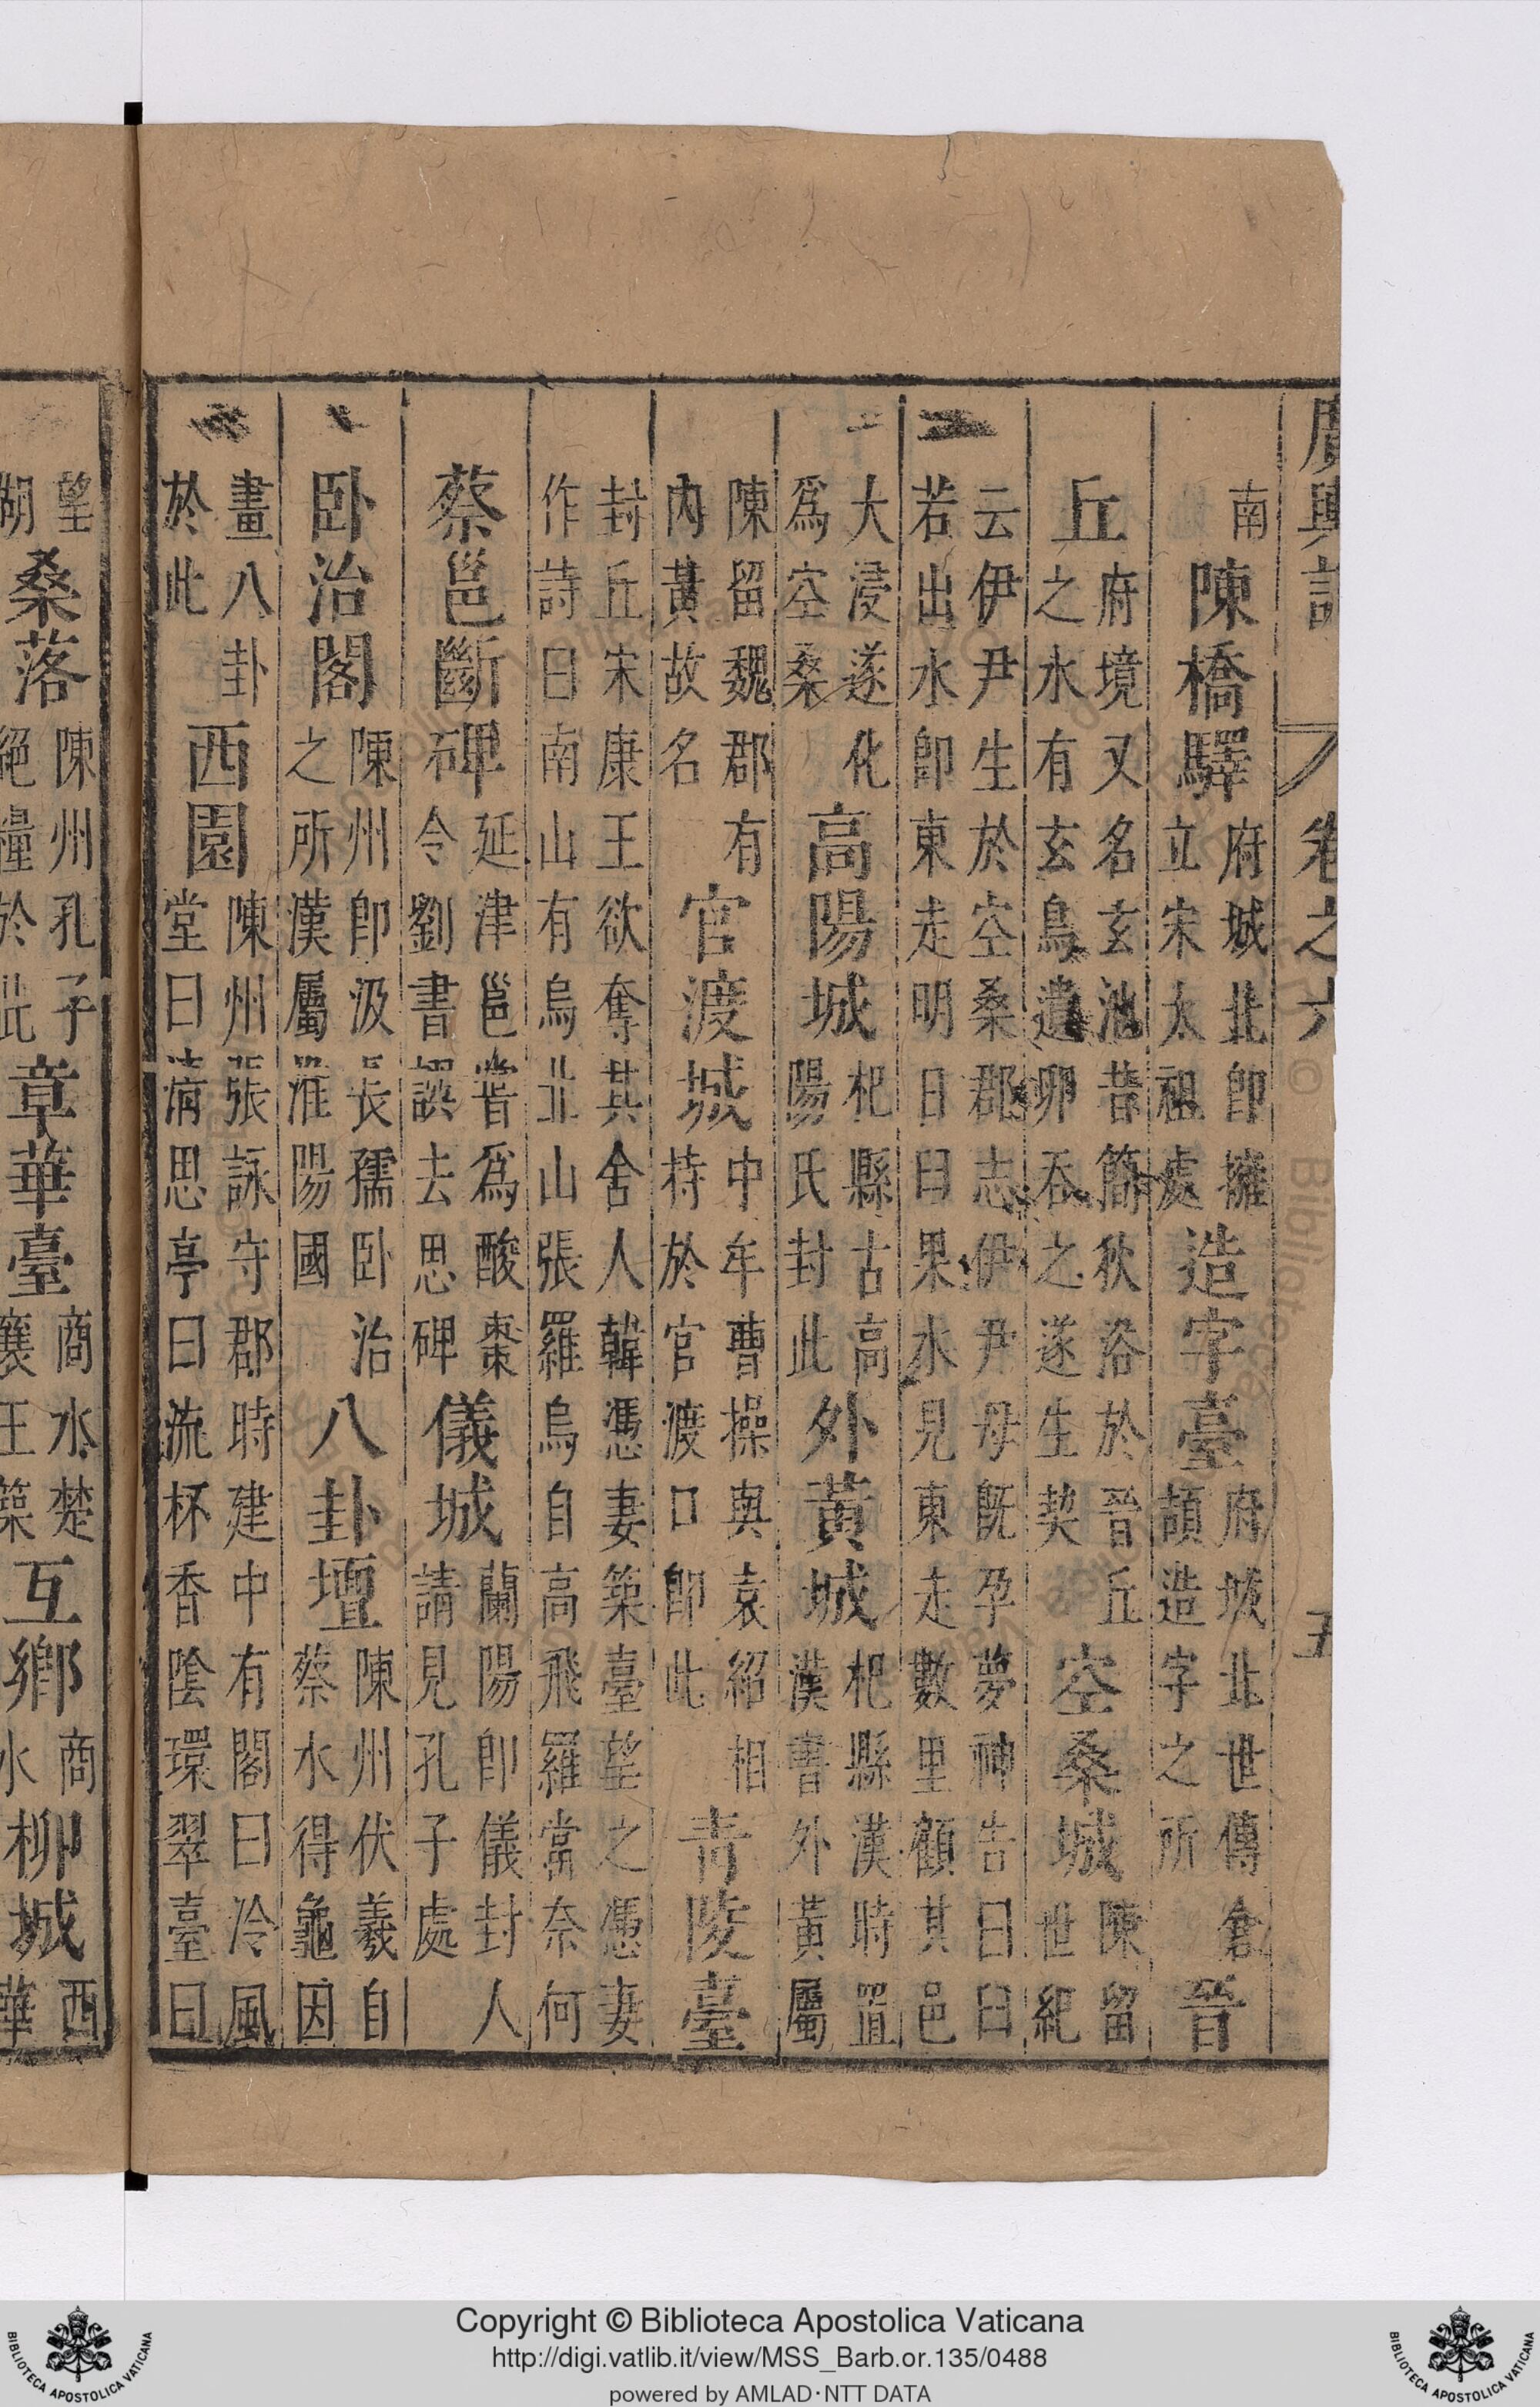 廣輿記 卷之六 五
南 陳橋驛 府城北即擁立宋太祖處 造字臺 府城北世傳倉頡造字之所 晉
丘 府境又名玄池昔簡狄浴於晉丘之水有玄鳥遺卵吞之遂生契 空桑城 陳留世紀
云伊尹生於空桑郡志伊尹母既孕夢神告曰臼若出水即東走明日臼果水見東走數里顧其邑
大浸遂化為空桑 高陽城 杞縣古高陽氏封此 外黃城 杞縣漢時置漢書外黃屬
陳留魏郡有內黃故名 官渡城 中牟曹操與袁紹相持於官渡口即此 青陵臺
封丘宋康王欲奪其舍人韓憑妻築臺望之憑妻作詩曰南山有烏北山張羅烏自高飛羅當奈何
蔡邕斷碑 延津邕嘗爲酸棗令劉書誤去思碑 儀城 蘭陽即儀封人請見孔子處
卧治閣 陳州即汲長孺卧治之所漢屬淮陽國 八卦壇 陳州伏羲自蔡水得龜因
畫八卦於此 西園 陳州張詠守郡時建中有閣曰冷風堂曰清思亭曰流杯香陰環翠臺曰
望湖 桑落 陳州孔子絕糧於此 章華臺 商水楚襄王築 互鄉 商水 柳城 西華
Copyright © Biblioteca Apostolica Vaticana
http://digi.vatlib.it/view/MSS_Barb.or.135/0488
powered by AMLAD·NTT DATA
BIBLIOTECA APOSTOLICA VATICANA
BIBLIOTECA APOSTOLICA VATICANA